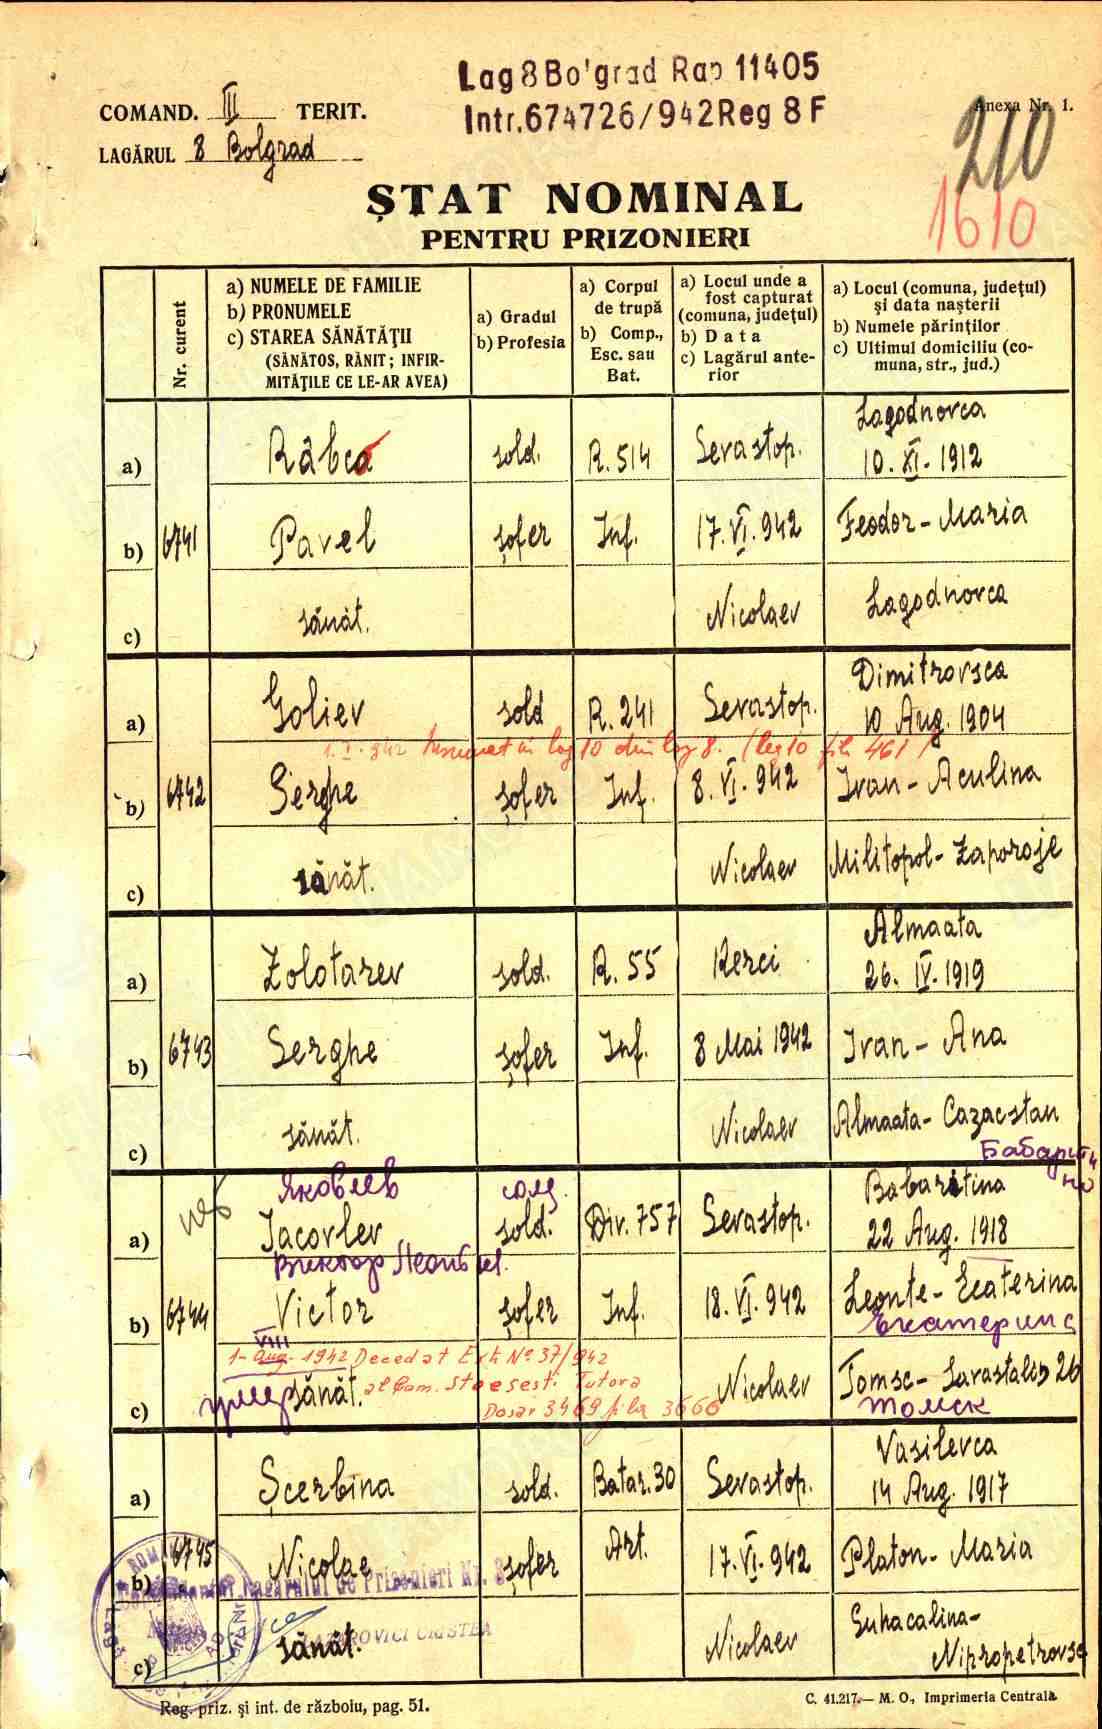 Lag 8 Bo'grad Rap 11405
Intr.674726/942 Reg 8 F
COMAND. III TERIT.
Anexa Nr. 1.
LAGĂRUL 8 Bolgrad
210
1610
ȘTAT NOMINAL
PENTRU PRIZONIERI
Nr. curent
a) NUMELE DE FAMILIE
b) PRONUMELE
c) STAREA SĂNĂTĂȚII
(SĂNĂTOS, RĂNIT; INFIR-
MITĂȚILE CE LE-AR AVEA)
a) Gradul
b) Profesia
a) Corpul
de trupă
b) Comp.,
Esc. sau
Bat.
a) Locul unde a
fost capturat
(comuna, județul)
b) Data
c) Lagărul ante-
rior
a) Locul (comuna, județul)
și data nașterii
b) Numele părinților
c) Ultimul domiciliu (co-
muna, str., jud.)
Lagodnovca
a) Râbca sold. R. 514 Sevastop. 10. XI. 1912
b) 6741 Pavel șofer Inf. 17. VI. 942 Feodor - Maria
c) sănăt. Nicolaev Lagodnovca
Dimitrovsca
a) Goliev sold R. 241 Sevastop. 10 Aug. 1904
1. I. 942 in lag 10 din lag 8. (lag 10 fil 461)
b) 6742 Serghe șofer Inf. 8. VI. 942 Ivan - Aculina
c) sănăt. Nicolaev Militopol - Zaporoje
Almaata
a) Zolotarev sold. R. 55 Kerci 26. IV. 1919
b) 6743 Serghe șofer Inf. 8 Mai 1942 Ivan - Ana
c) sănăt. Nicolaev Almaata - Cazacstan
Бабарыти
но
Яковлев сол.
Babaritina
a) Iacovlev sold. Div. 757 Sevastop. 22 Aug. 1918
Виктор
b) 6744 Victor șofer Inf. 18. VI. 942 Leonte - Ecaterina
Екатерина
VIII
1 - Aug. 1942 Decedat Ext. No 37/942
c) умер sănăt. Nicolaev Tomsc - 26
al Com. Tutora
Томск
Dosar 3469 fila 3666
Vasilevca
a) Șcerbina sold. Batar. 30 Sevastop. 14 Aug. 1917
b) 6745 Nicolae șofer Art. 17. VI. 942 Platon - Maria
Comandantul Lagărului de Prizonieri Nr. 8
LAZAROVICI CRISTEA
c) sănăt. Nicolaev Suhacalina -
Nipropetrovsc
Reg. priz. și int. de războiu, pag. 51.
C. 41.217.— M. O., Imprimeria Centrală.